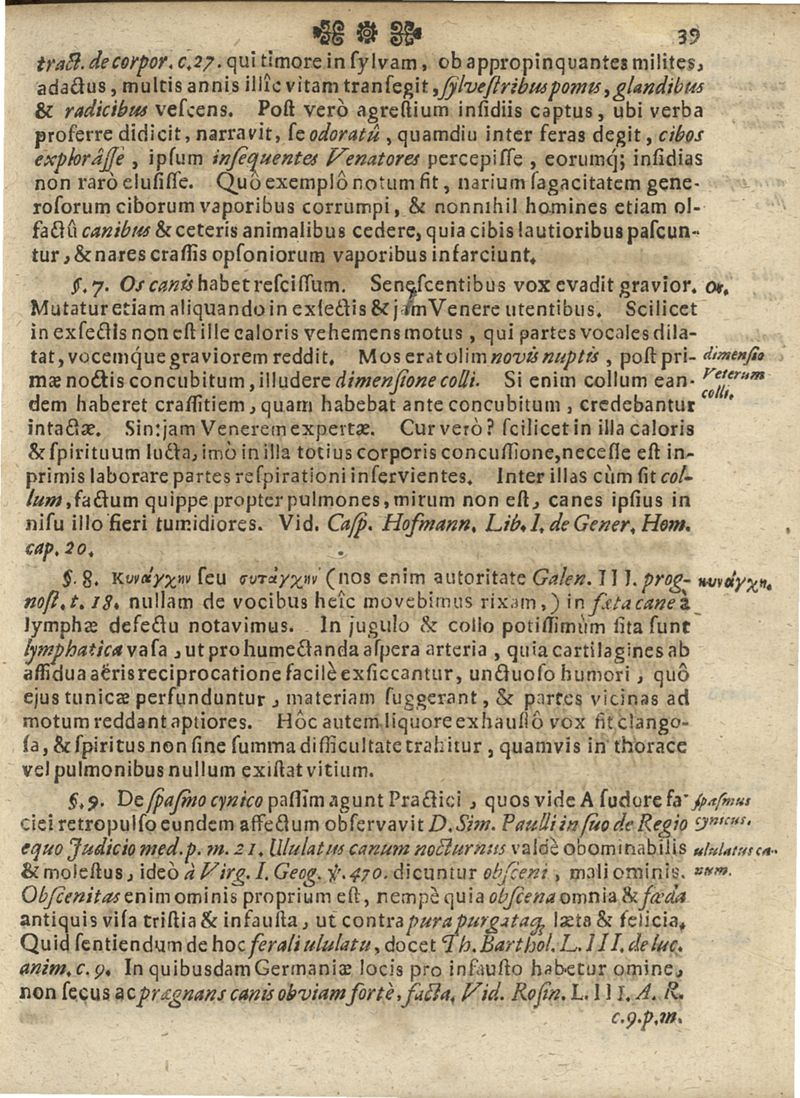 39
tract. de corpor. c. 27. qui timore in sylvam, ob appropinquantes milites,
adactus, multis annis illîc vitam transegit, sylvestribus pomis, glandibus
& radicibus vescens. Post verò agrestium insidiis captus, ubi verba
proferre didicit, narravit, se odoratû, quamdiu inter feras degit, cibos
explorâsse, ipsum insequentes Venatores percepisse, eorumq́; insidias
non rarò elusisse. Quô exemplô notum fit, narium sagacitatem gene-
rosorum ciborum vaporibus corrumpi, & nonnihil homines etiam ol-
factû canibus & ceteris animalibus cedere, quia cibis lautioribus pascun-
tur, & nares crassis opsoniorum vaporibus infarciunt.
§. 7. Os canis habet rescissum. Senescentibus vox evadit gravior. Os.
Mutatur etiam aliquando in exsectis & jam Venere utentibus. Scilicet
in exsectis non est ille caloris vehemens motus, qui partes vocales dila-
tat, vocemque graviorem reddit. Mos erat olim novis nuptis, post pri- dimensio
mæ noctis concubitum, illudere dimensione colli. Si enim collum ean- Veterum
colli.
dem haberet crassitiem, quam habebat ante concubitum, credebantur
intactæ. Sin: jam Venerem expertæ. Cur verò? scilicet in illa caloris
& spirituum lucta, imò in illa totius corporis concussione, necesse est in-
primis laborare partes respirationi inservientes. Inter illas cùm sit col-
lum, factum quippe propter pulmones, mirum non est, canes ipsius in
nisu illo fieri tumidiores. Vid. Casp. Hofmann. Lib. I. de Gener. Hom.
cap. 20.
§. 8. Κυνάγχην seu συνάγχην (nos enim autoritate Galen. III. prog- κυνάγχη.
nost. t. 18. nullam de vocibus heîc movebimus rixam,) in fœta cane à
lymphæ defectu notavimus. In jugulo & collo potissimùm sita sunt
lymphatica vasa, ut pro humectanda aspera arteria, quia cartilagines ab
assidua aëris reciprocatione facilè exsiccantur, unctuoso humori, quô
ejus tunicæ perfunduntur, materiam suggerant, & partes vicinas ad
motum reddant aptiores. Hôc autem liquore exhaustô vox fit clango-
sa, & spiritus non sine summa difficultate trahitur, quamvis in thorace
vel pulmonibus nullum existat vitium.
§. 9. De spasmo cynico passim agunt Practici, quos vide A sudore fa- spasmus
ciei retropulso eundem affectum observavit D. Sim. Paulli in suo de Regio cynicus.
equo Judicio med. p. m. 21. Ululatus canum nocturnus valdè obominabilis ululatus ca-
& molestus, ideò à Virg. I. Geog. ℣. 470. dicuntur obsceni, mali ominis. num.
Obscenitas enim ominis proprium est, nempè quia obscena omnia & fœda
antiquis visa tristia & infausta, ut contra pura purgataq; læta & felicia.
Quid sentiendum de hoc ferali ululatu, docet Th. Barthol. L. III. de luc.
anim. c. 9. In quibusdam Germaniæ locis pro infausto habetur omine,
non secus ac prægnans canis obviam fortè, facta. Vid. Rosin. L. III. A. R.
c. 9. p. m.